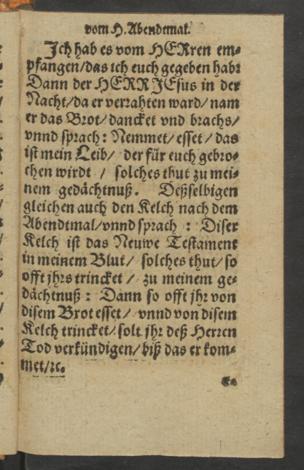 vom H. Abendtmal.
Jch hab es vom HERren em-
pfangen/das ich euch gegeben habe
Dann der HERR JEsus in der
Nacht/da er verrahten ward/nam
er das Brot/dancket vnd brachs/
vnnd sprach: Nemmet/esset/das
ist mein Leib/ der für euch gebro-
chen wirdt / solches thut zu mei-
nem gedächtnuß. Deßselbigen
gleichen auch den Kelch nach dem
Abendtmal/vnnd sprach : Diser
Kelch ist das Neuwe Testament
in meinem Blut/ solches thut/so
offt jhrs trincket / zu meinem ge-
dächtnuß : Dann so offt jhr von
disem Brot esset/ vnnd von disem
Kelch trincket/solt jhr deß Herren
Tod verkündigen/biß das er kom-
met/ꝛc.